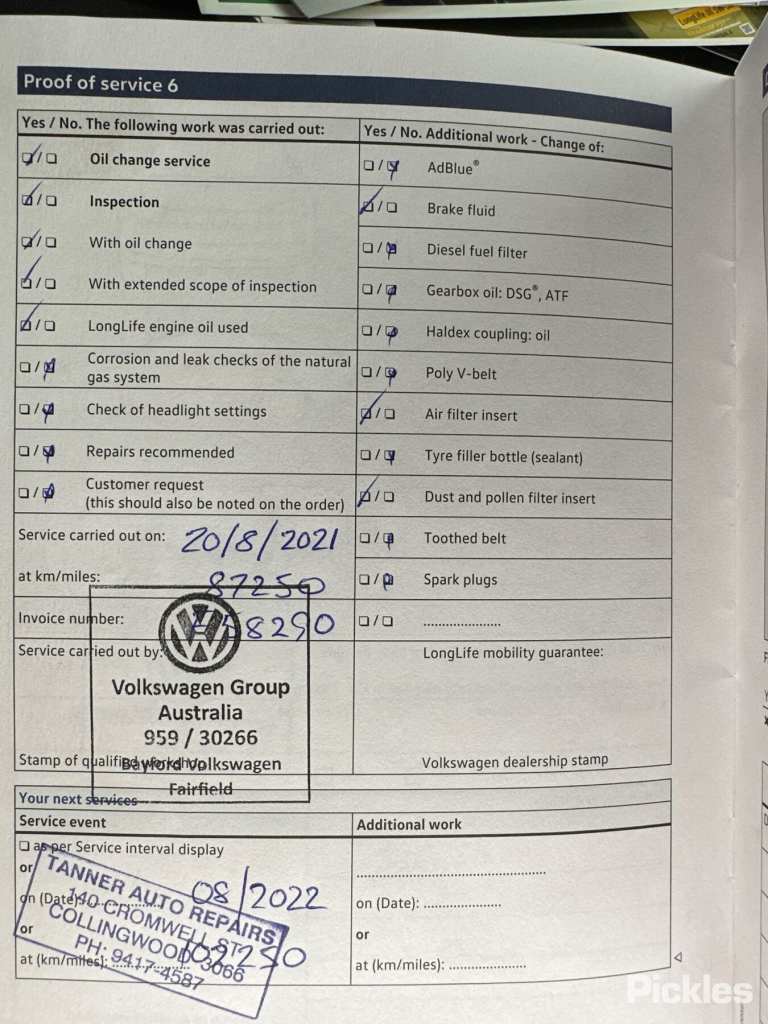 Proof of service 6
Yes / No. The following work was carried out:
Oil change service
Inspection
With oil change
With extended scope of inspection
LongLife engine oil used
Corrosion and leak checks of the natural
gas system
Check of headlight settings
Repairs recommended
Customer request
(this should also be noted on the order)
Yes / No. Additional work - Change of:
AdBlue®
Brake fluid
Diesel fuel filter
Gearbox oil: DSG®, ATF
Haldex coupling: oil
Poly V-belt
Air filter insert
Tyre filler bottle (sealant)
Dust and pollen filter insert
Toothed belt
Spark plugs
.....................
Service carried out on: 20/8/2021
at km/miles: 87250
Invoice number: 58290
Service carried out by:
Volkswagen Group
Australia
959 / 30266
Bayford Volkswagen
Fairfield
Stamp of qualified workshop
LongLife mobility guarantee:
Volkswagen dealership stamp
Your next services
Service event
as per Service interval display
or
on (Date): 08/2022
or
at (km/miles): 102250
TANNER AUTO REPAIRS
140 CROMWELL ST
COLLINGWOOD 3066
PH: 9417-4587
Additional work
.....................
on (Date): .....................
or
at (km/miles): .....................
Pickles